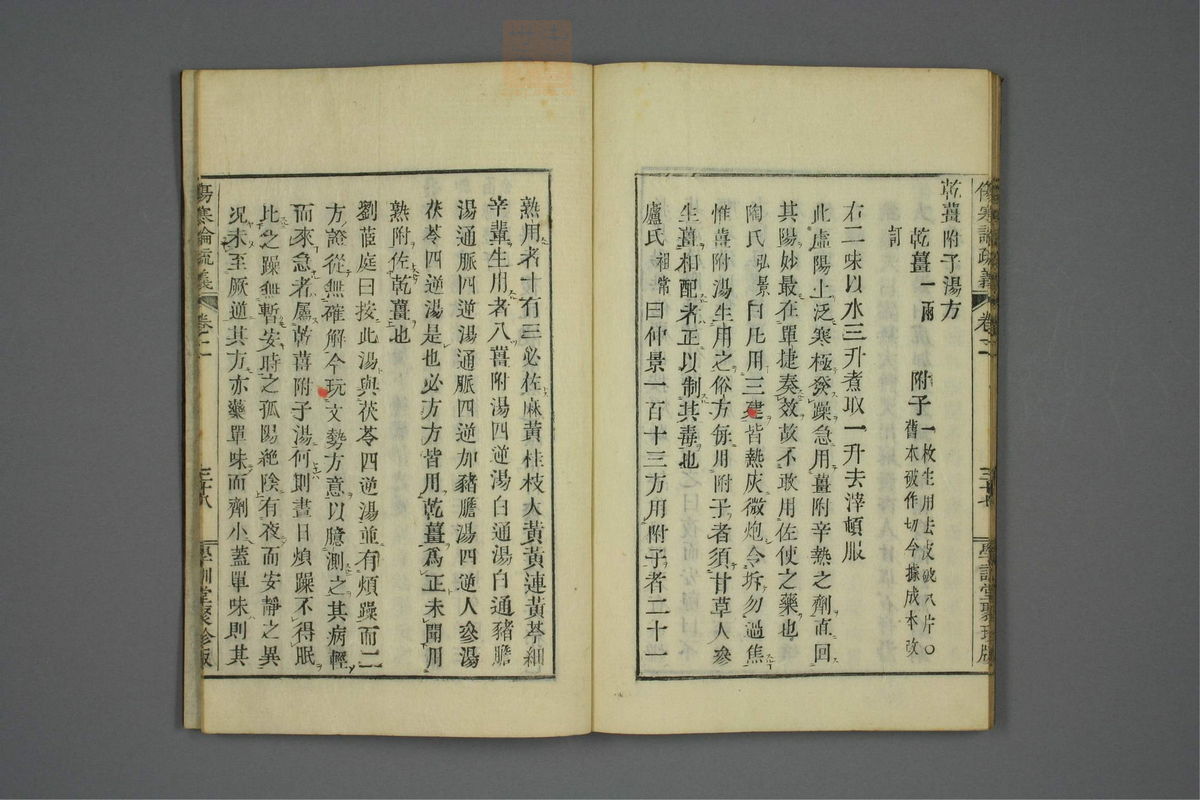 傷寒論疏義 卷二 三十七 學訓堂聚珍版
乾薑附子湯方
乾薑一兩 附子一枚生用去皮破八片〇舊本破作切今據成本改
訂
右二味以水三升煮取一升去滓頓服
此虛陽上泛寒極發躁急用薑附辛熱之劑直回
其陽妙最在單捷奏效故不敢用佐使之藥也
陶氏弘景曰凡用三建皆熱灰微炮令坼勿過焦
惟薑附湯生用之俗方每用附子者須甘草人參
生薑相配者正以制其毒也
盧氏祖常曰仲景一百十三方用附子者二十一
熟用者十有三必佐麻黃桂枝大黃黃連黃芩細
辛輩生用者八薑附湯四逆湯白通湯白通豬膽
湯通脈四逆湯通脈四逆加豬膽湯四逆人參湯
茯苓四逆湯是也必方方皆用乾薑爲正未聞用
熟附佐乾薑也
劉茝庭曰按此湯與茯苓四逆湯並有煩躁而二
方證從無確解今玩文勢方意以臆測之其病輕
而來急者屬乾薑附子湯何則晝日煩躁不得眠
比之躁無暫安時之孤陽絶陰有夜而安靜之異
況未至厥逆其方亦藥單味而劑小蓋單味則其
傷寒論疏義 卷二 三十八 學訓堂聚珍版